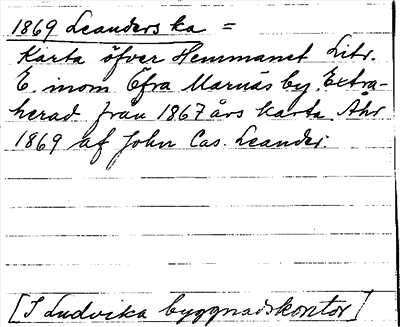 1869 Leanderska =
Karta öfver Hemmanet Litr.
E. inom Öfra Marnäs by. Extra-
herad från 1867 års karta Ahr
1869 af John Cas. Leander.
[I Ludvika byggnadskontor]